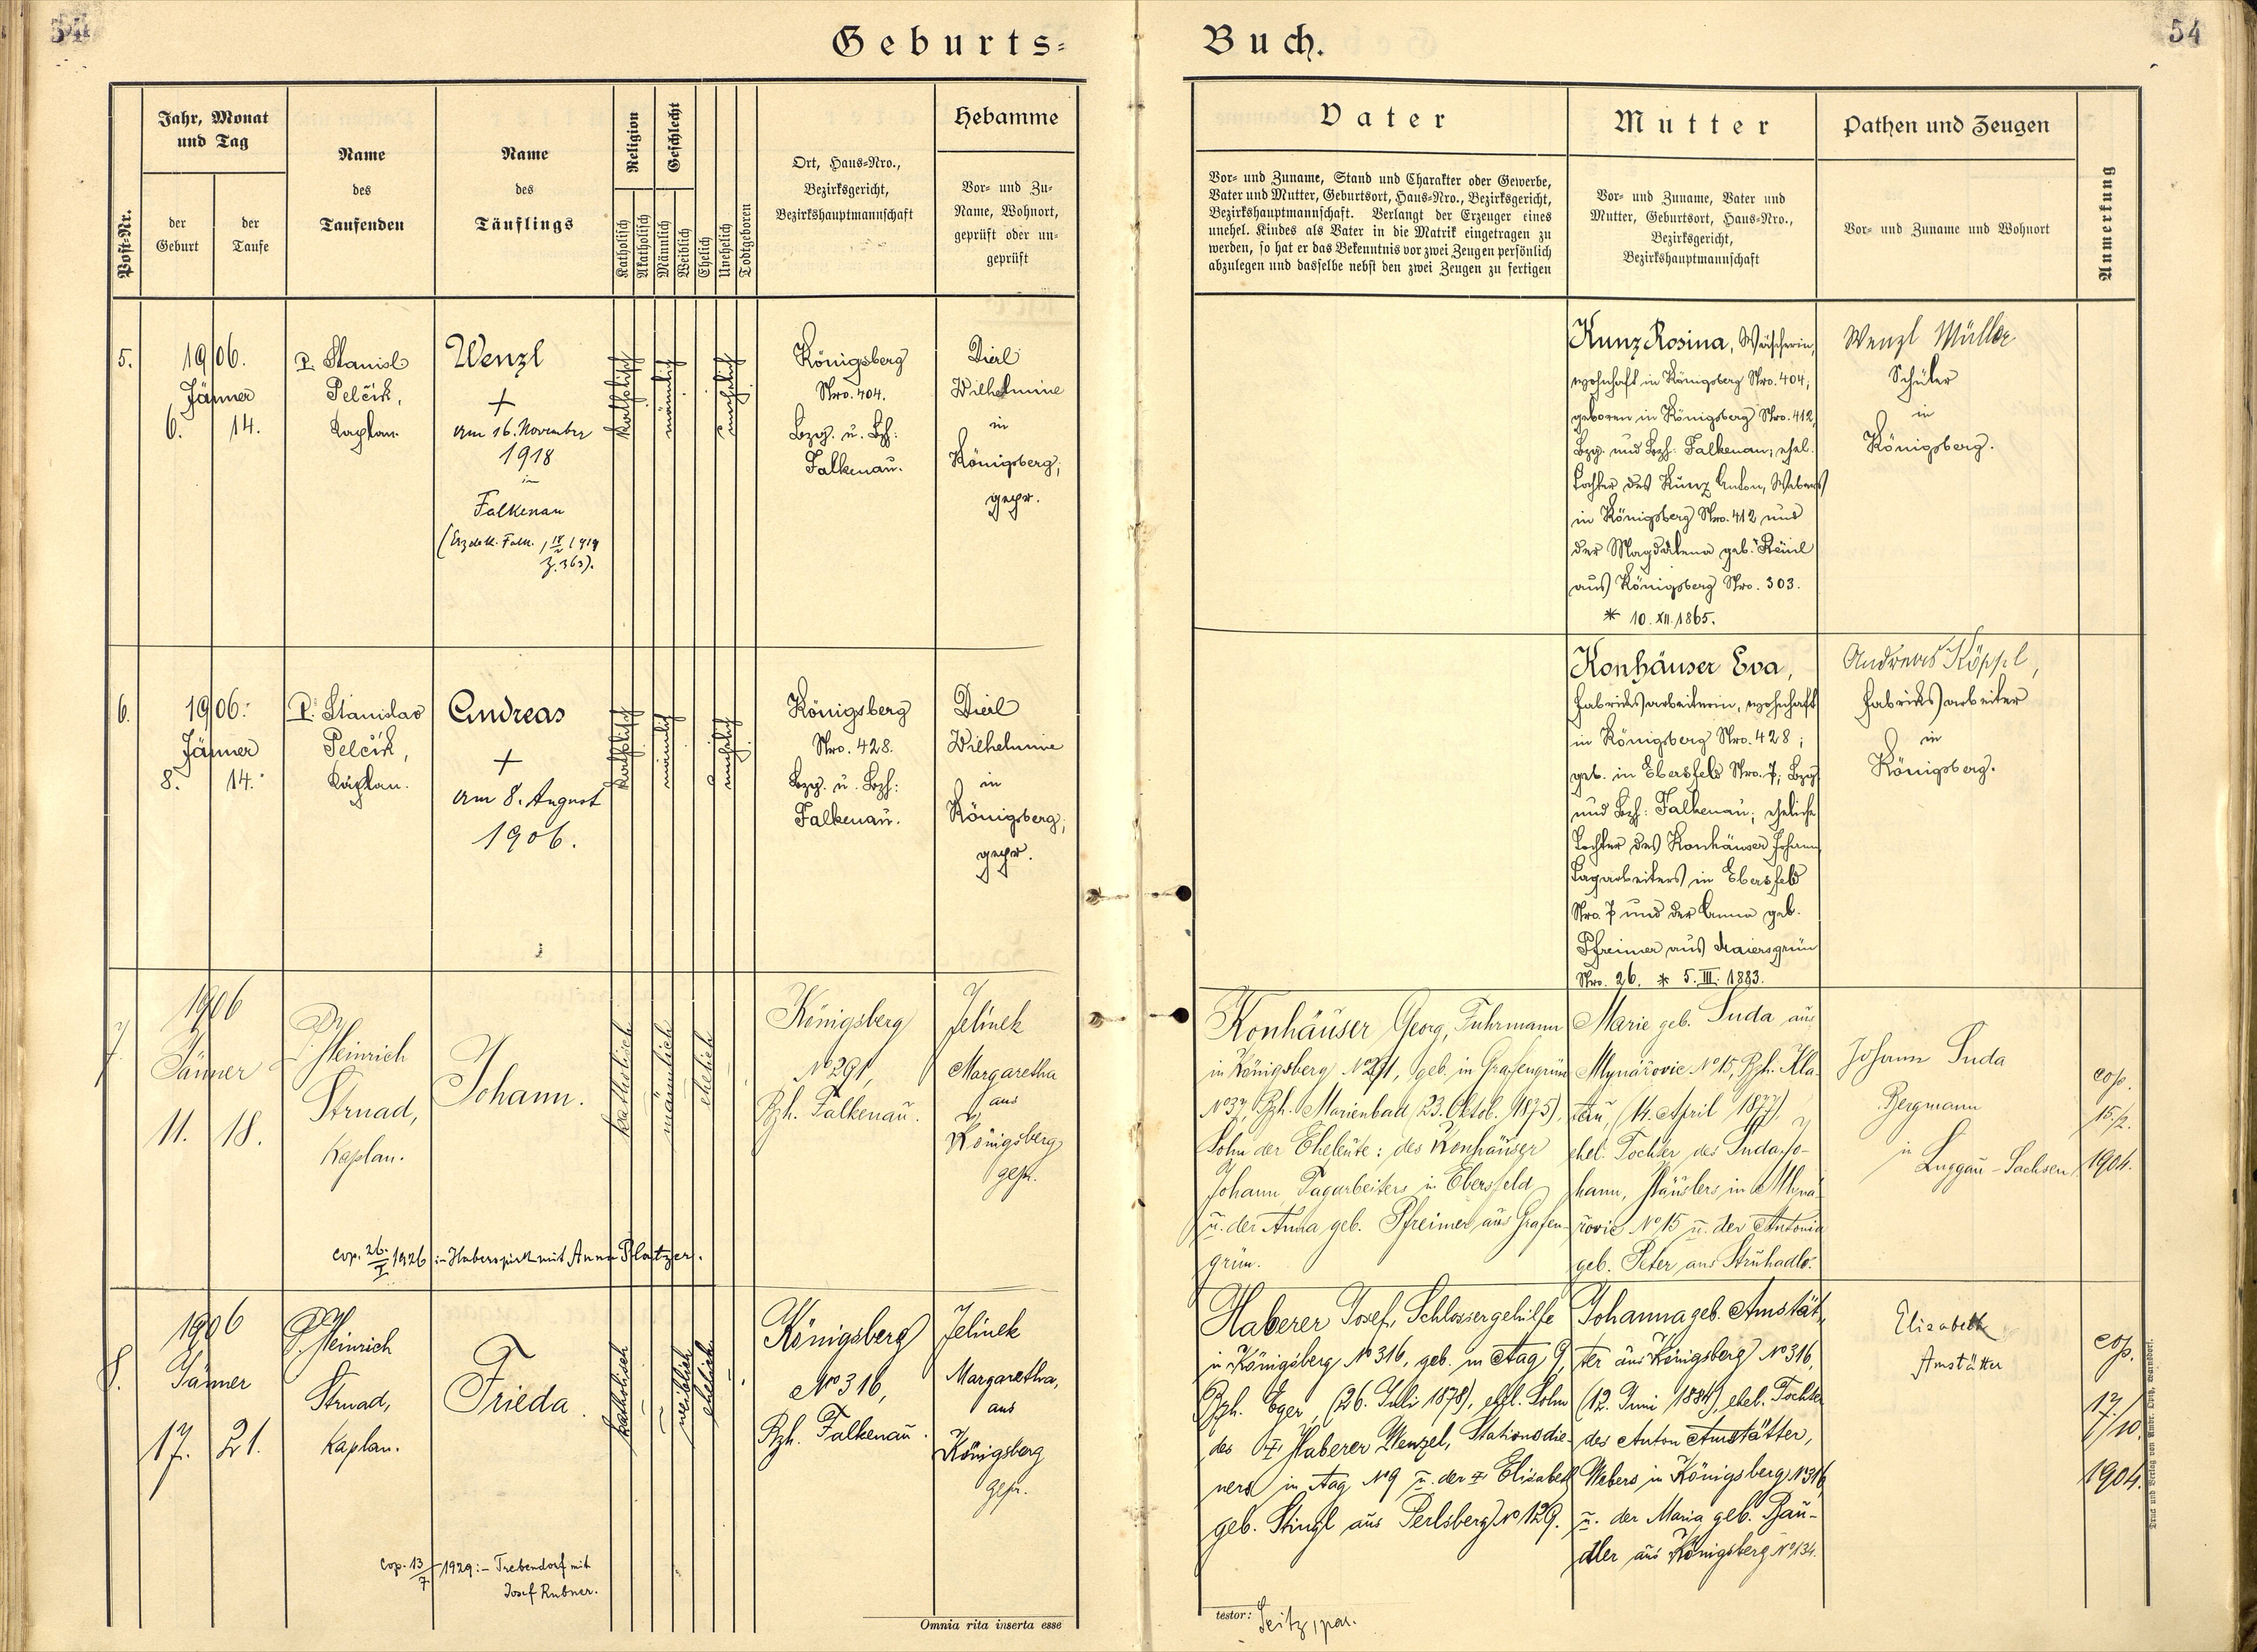 54
Geburts-
Jahr, Monat
und Tag
Post-Nr.
der
Geburt
der
Taufe
Name
des
Taufenden
Name
des
Täuflings
Religion
Katholisch
Akatholisch
Geschlecht
Männlich
Weiblich
Ehelich
Unehelich
Todtgeboren
Ort, Haus-Nro.,
Bezirksgericht,
Bezirkshauptmannschaft
Hebamme
Vor- und Zu-
Name, Wohnort,
geprüft oder un-
geprüft
5.
1906.
Jänner
6. 14.
P. Stanisl
Pelčik,
Kaplan.
Wenzl
+
am 16. November
1918
in
Falkenau
katholisch
männlich
unehelich
Königsberg
Nro. 404.
Bzg. u. Bzh:
Falkenau.
Dierl
Wilhelmine
in
Königsberg;
gepr.
6.
1906.
Jänner
8. 14.
P. Stanislav
Pelčik,
Kaplan.
Andreas
+
am 8. August
1906.
katholisch
männlich
unehelich
Königsberg
Nro. 428.
Bzg. u. Bzh:
Falkenau.
Dierl
Wilhelmine
in
Königsberg;
gepr.
7
1906
Jänner
11. 18.
P. Heinrich
Strnad,
Kaplan.
Johann.
katholisch
männlich
ehelich
Königsberg
No 291,
Bzh. Falkenau.
Jelinek
Margaretha
aus
Königsberg
gepr.
cop. 26./I 1926 in Haberspirk mit Anna Platzer.
8.
1906
Jänner
17. 21.
P. Heinrich
Strnad,
Kaplan.
Frieda.
katholisch
weiblich
ehelich
Königsberg
No 316,
Bzh. Falkenau.
Jelinek
Margaretha,
aus
Königsberg
gepr.
cop. 13/7 1929 :- Trebendorf mit
Josef Rubner.
Omnia rita inserta esse
Buch.
54
Vater
Vor- und Zuname, Stand und Charakter oder Gewerbe,
Vater und Mutter, Geburtsort, Haus-Nro., Bezirksgericht,
Bezirkshauptmannschaft. Verlangt der Erzeuger eines
unehel. Kindes als Vater in die Matrik eingetragen zu
werden, so hat er das Bekenntnis vor zwei Zeugen persönlich
abzulegen und dasselbe nebst den zwei Zeugen zu fertigen
Mutter
Vor- und Zuname, Vater und
Mutter, Geburtsort, Haus-Nro.,
Bezirksgericht,
Bezirkshauptmannschaft
Pathen und Zeugen
Vor- und Zuname und Wohnort
Anmerkung
Kunz Rosina, Wäscherin,
wohnhaft in Königsberg Nro. 404;
geboren in Königsberg Nro. 412,
Bzg. und Bzh. Falkenau; ehel.
Tochter des Kunz Anton, Webers
in Königsberg Nro. 412 und
der Magdalena geb.
aus Königsberg Nro. 303.
* 10. XII. 1865.
Wenzl Müller
Schüler
in
Königsberg.
Konhäuser Eva,
Fabriksarbeiterin, wohnhaft
in Königsberg Nro. 428;
geb. in Ebersfeld Nro. 7; Bzg.
und Bzh: Falkenau; eheliche
Tochter des Konhäuser Johann
Tagarbeiters in Ebersfeld
Nro. 7 und der Anna geb.
Pfreimer aus Maiersgrün
Nro. 26. * 5. III. 1883.
Andreas Köppl,
Fabriksarbeiter
in
Königsberg.
Konhäuser Georg, Fuhrmann
in Königsberg No 291, geb. in Grafengrün
No 37, Bzh. Marienbad (23. Oktob. 1875),
Sohn der Eheleute: des Konhäuser
Johann Tagarbeiters in Ebersfeld
u. der Anna geb. Pfreimer aus Grafen-
grün.
Marie geb. Suda aus
Mlynářovic No 15, Bzh. Kla-
tau, (14. April 1877),
ehel. Tochter des Suda Jo-
hann, Häuslers in Mlyná-
řovic No 15 u. der Antonia
geb. Peter aus Struhadlo.
Johann Suda
Bergmann
in Luggau-Sachsen
cop.
15./2.
1904.
Haberer Josef, Schlossergehilfe
in Königsberg No 316, geb. in Aag 9,
Bzh. Eger, (26. Juli 1878), ehel. Sohn
des + Haberer Wenzel, Stationsdie-
ners in Aag No 9 u. der + Elisabeth
geb. Stingl aus Perlsberg No 129.
Johanna geb. Amstät-
ter aus Königsberg No 316,
(12. Juni 1884), ehel. Tochter
des Anton Amstätter,
Webers in Königsberg No 316
u. der Maria geb. Bau-
dler aus Königsberg No 134.
Elisabeth
Amstätter
cop.
17./10.
1904.
testor: Seitz, par.
Druck und Verlag von Ambr. Opitz, Warnsdorf.